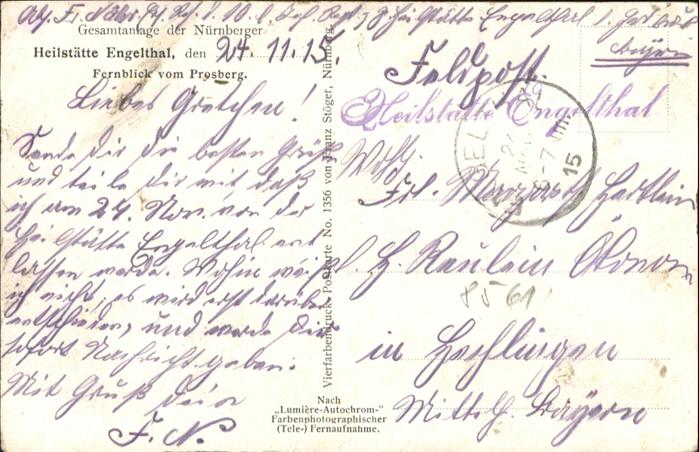 Heilstätte Engelthal
Gesamtanlage der Nürnberger
Heilstätte Engelthal, den 24.11.15.
Fernblick vom Prosberg.
Liebes Gretchen!
Sende Dir die besten Grüße
und teile Dir mit daß
ich am 24. Nov. von der
Heilstätte Engelthal ent
lassen werde. Wohin weiß
ich nicht, es wird erst darüber
entschieden, und werde Dir
sofort Nachricht geben.
Mit Gruß Dein
F. N.
Vierfarbendruck-Postkarte No. 1356 von Franz Stöger, Nürnberg.
Nach
„Lumière-Autochrom-“
Farbenphotographischer
(Tele-) Fernaufnahme.
Bayern
Feldpost.
Heilstätte Engelthal
15
Frl.
in Hechlingen
Mittelf. Bayern
8561